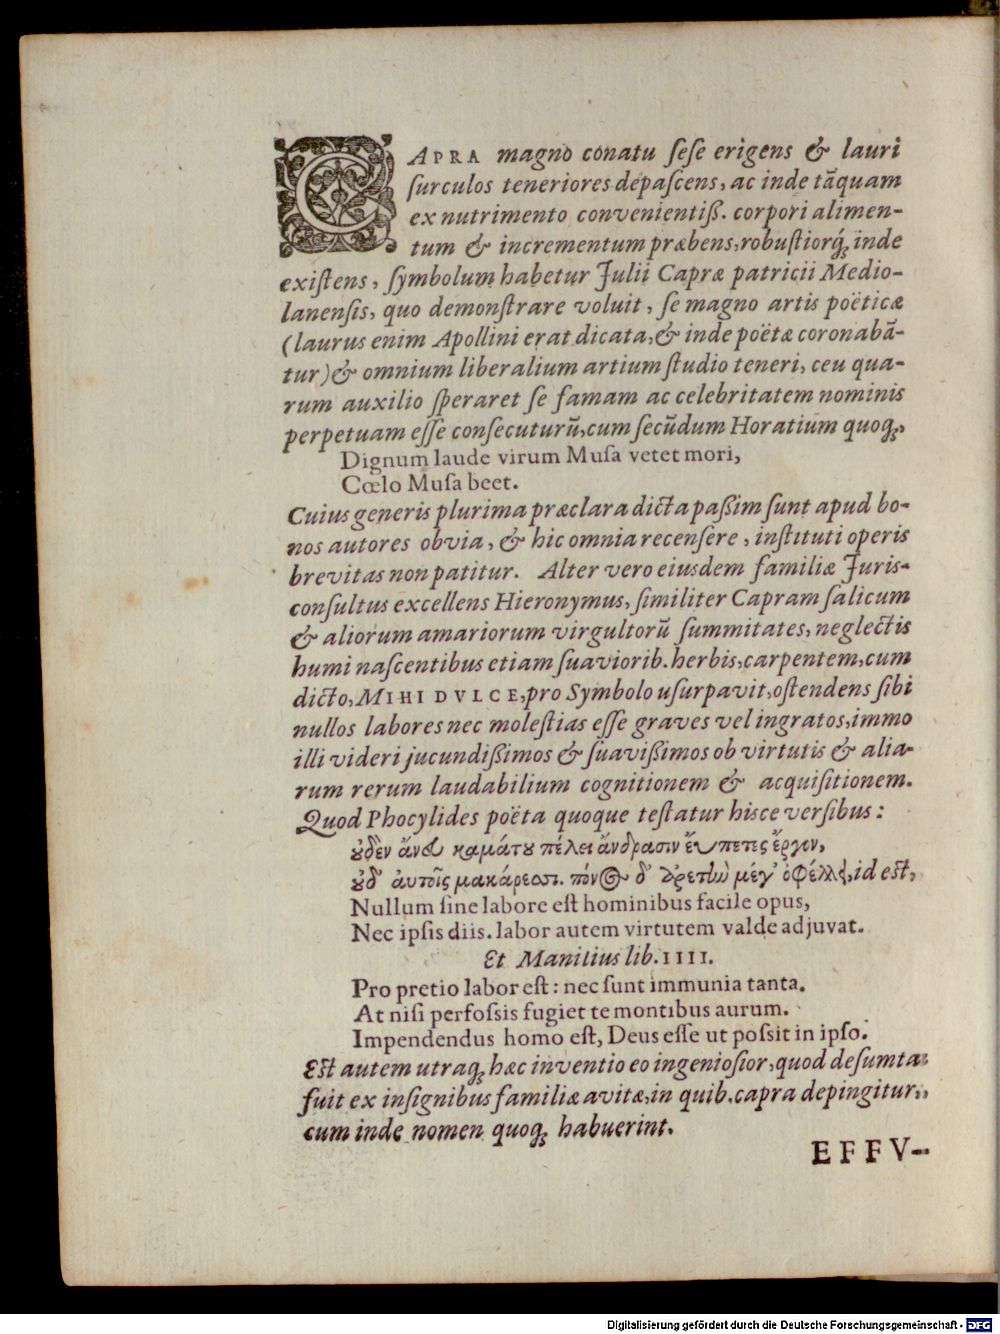 CAPRA magno conatu ſeſe erigens & lauri
ſurculos teneriores depaſcens, ac inde tãquam
ex nutrimento convenientiß. corpori alimen-
tum & incrementum præbens, robuſtiorq́ꝫ inde
exiſtens, ſymbolum habetur Julii Capræ patricii Medio-
lanenſis, quo demonſtrare voluit, ſe magno artis poëticæ
(laurus enim Apollini erat dicata, & inde poëtæ coronabã-
tur) & omnium liberalium artium ſtudio teneri, ceu qua-
rum auxilio ſperaret ſe famam ac celebritatem nominis
perpetuam eſſe conſecuturũ, cum ſecũdum Horatium quoqꝫ,
Dignum laude virum Muſa vetet mori,
Cœlo Muſa beet.
Cuius generis plurima præclara dicta paßim ſunt apud bo-
nos autores obvia, & hic omnia recenſere, inſtituti operis
brevitas non patitur. Alter vero eiusdem familiæ Juris-
conſultus excellens Hieronymus, ſimiliter Capram ſalicum
& aliorum amariorum virgultorũ ſummitates, neglectis
humi naſcentibus etiam ſuaviorib. herbis, carpentem, cum
dicto, MIHI DVLCE, pro Symbolo uſurpavit, oſtendens ſibi
nullos labores nec moleſtias eſſe graves vel ingratos, immo
illi videri jucundißimos & ſuavißimos ob virtutis & alia-
rum rerum laudabilium cognitionem & acquiſitionem.
Quod Phocylides poëta quoque teſtatur hisce verſibus:
ȣδὲν ἄνευ καμάτȣ πέλει ἄνδρασιν ἔυπετες ἔργον,
ȣδ' ἀυτοῖς μακάρεσσι. πόνος δ' ἀρετὴν μέγ' ὀφέλλει, id eſt,
Nullum ſine labore eſt hominibus facile opus,
Nec ipſis diis. labor autem virtutem valde adjuvat.
Et Manilius lib. IIII.
Pro pretio labor eſt: nec ſunt immunia tanta.
At niſi perfoſsis fugiet te montibus aurum.
Impendendus homo eſt, Deus eſſe ut poſsit in ipſo.
Eſt autem utraqꝫ hæc inventio eo ingenioſior, quod deſumta
fuit ex inſignibus familiæ avitæ, in quib. capra depingitur,
cum inde nomen quoqꝫ habuerint.
EFFV-
Digitalisierung gefördert durch die Deutsche Forschungsgemeinschaft - DFG